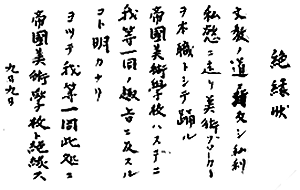 絶縁状
文教ノ道シ私利
私慾ニ走リ美術ブローカー
ヲ本職トシテ踊ル
帝國美術學校ハスデニ
我等一同ノ趣旨ニ反スル
コト明カナリ
ヨツテ我等一同此処ニ
帝國美術學校ト絶縁ス
九月九日